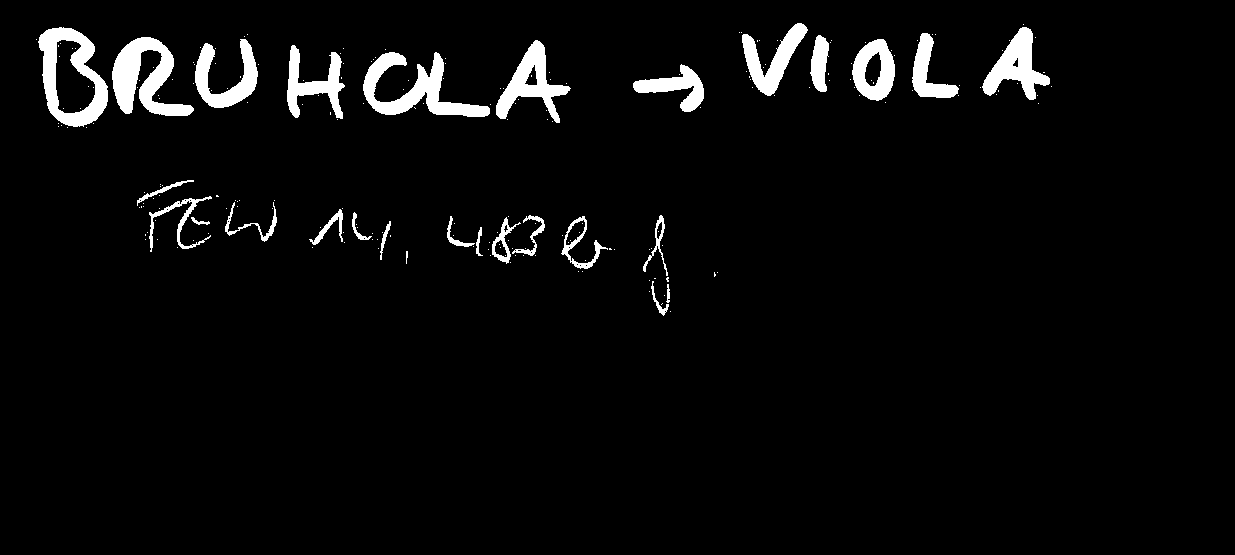 BRUHOLA → VIOLA
FEW 14, 483 b f.